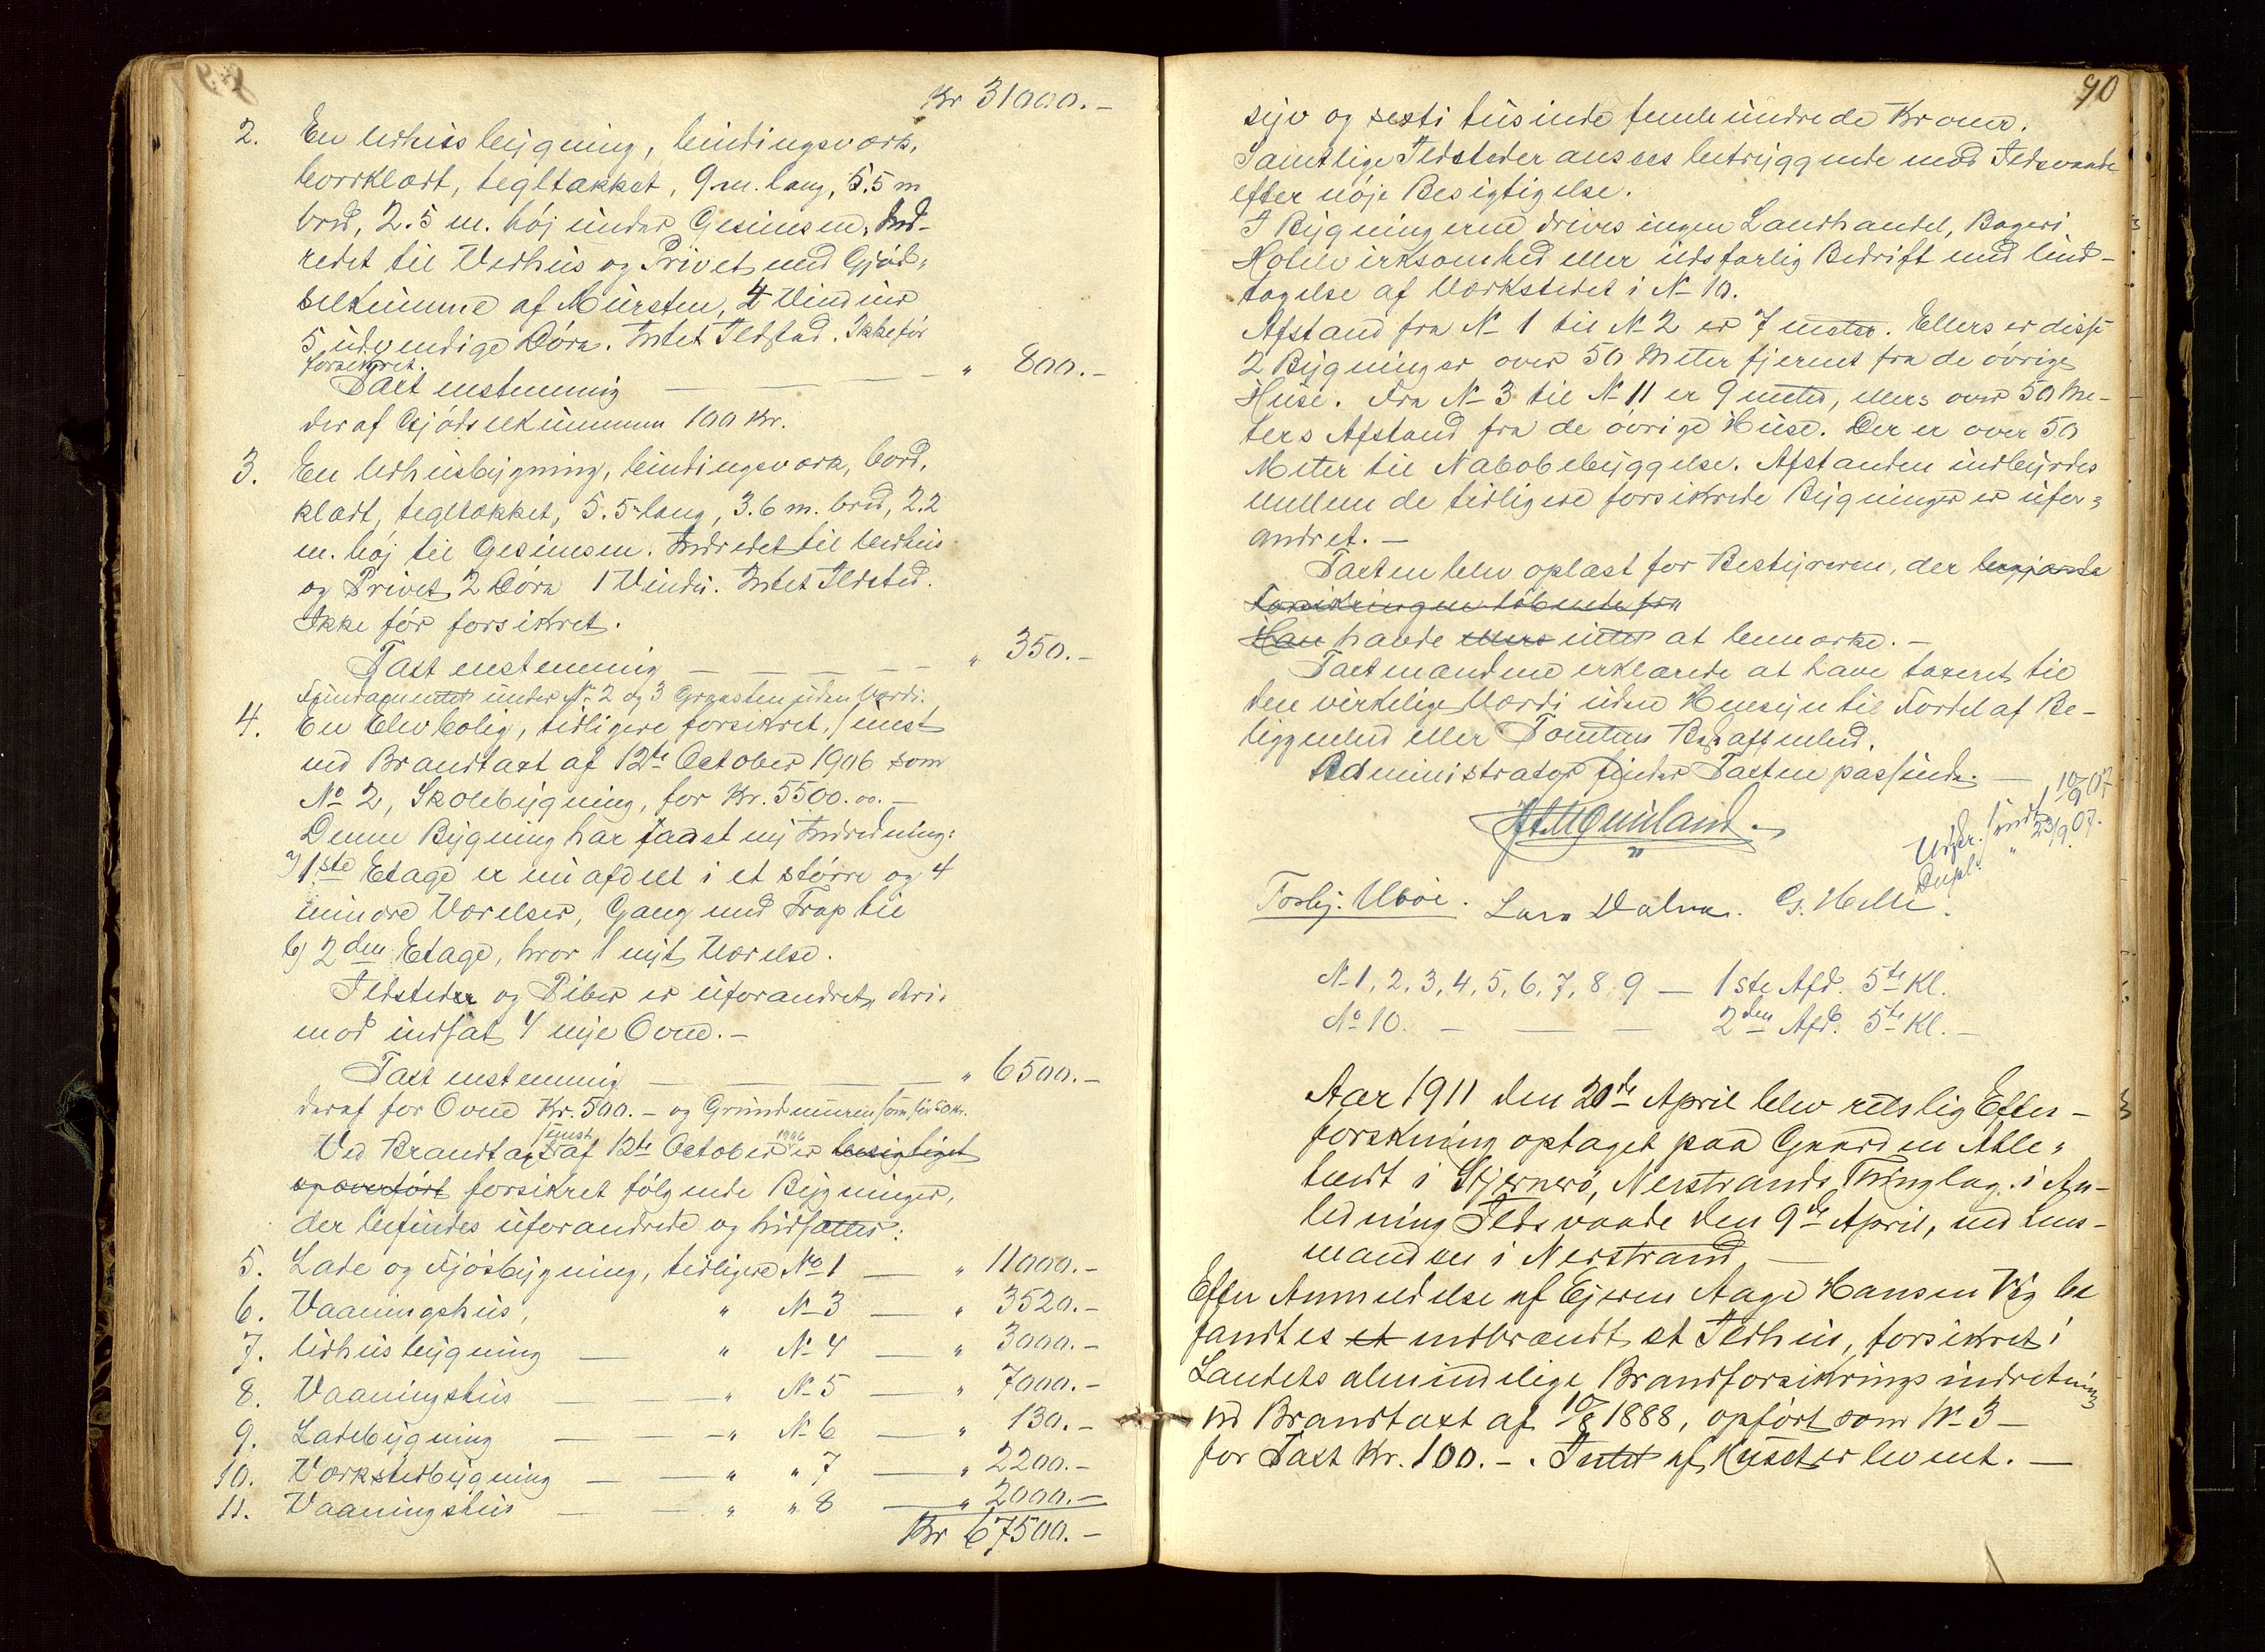 Kr 31000.-
2. En Udhusbygning, bindingsværk,
bordklædt, tegltækket, 9 m. lang, 5,5 m
bred, 2.5 m. høj under Gesimsen, Ind-
redet til Vedhus og Privet med Gjød-
selkumme af Mursten, 4 Vinduer
5 udvendige Døre. Intet Ildsted. Ikke før
forsikret.
Taxt enstemmig — — — " 800.-
deraf Gjødselkummen 100 Kr.
3. En Udhusbygning, bindingsværk, bord,
klædt, tegltækket, 5.5 lang, 3.6 m. bred, 2.2
m. høj til Gesimsen. Indredet til Vedhus
og Privet, 2 Døre 1 Vindu. Intet Ildsted.
Ikke før forsikret.
Taxt enstemmig — — — " 350.-
Fundamentet under No 2 og 3 Graasten uden Værdi.
4. En Elevbolig, tidligere forsikret, senest
ved Brandtaxt af 12te October 1906 som
No 2, Skolebygning, for Kr. 5500.00.-
Denne Bygning har faaet ny Indredning:
a) 1ste Etage er nu afdelt i et større og 4
mindre Værelser, Gang med Trap til
b) 2den Etage, hvor 1 nyt Værelse.
Ildsteder og Piber er uforandret, deri-
mod indsat 4 nye Ovne.-
Taxt enstemmig — — — " 6500.-
deraf for Ovne Kr. 500.- og Grundmuren som før 50 Kr.
Ved Brandtaxt senest af 12te October 1906 er besigtiget
og overført forsikret følgende Bygninger,
der befindes uforandrede og hidsættes:
5. Lade og Fjøsbygning, tidligere No 1 — " 11000.-
6. Vaaningshus, " No 3 — " 3520.-
7. Udhusbygning — " No 4 — " 3000.-
8. Vaaningshus — — " No 5 — " 7000.-
9. Ladebygning — — " No 6 — " 130.-
10. Værkstedbygning — — " " 7 — " 2200.-
11. Vaaningshus — — " " 8 — " 2000.-
Kr 67500.-
90
syv og sexti tusinde femhundrede Kroner.
Samtlige Ildsteder ansees betryggende mod Ildsvaade
efter nøje Besigtigelse.
I Bygningerne drives ingen Landhandel, Bageri
Hotelvirksomhed eller ildsfarlig Bedrift med Und-
tagelse af Værkstedet i No 10.
Afstand fra No 1 til No 2 er 7 meter. Ellers er disse
2 Bygninger over 50 Meter fjernet fra de øvrige
Huse. Fra No 3 til No 11 er 9 meter, ellers over 50 Me-
ters Afstand fra de øvrige Huse. Der er over 50
Meter til Nabobebyggelse. Afstanden indbyrdes
mellem de tidligere forsikrede Bygninger er ufor-
andret.-
Taxten blev oplæst for Bestyreren, der begjærte
Forsikringen løbende fra
Han havde ellers intet at bemærke.-
Taxtmændene erklærede at have taxeret til
den virkelige Værdi uden Hensyn til Fordel af Be-
liggenhed eller Tomtens Beskaffenhed.
Administrator finder Taxten passende.-
Udskr. sendt 10/9 07.
Dupl. " 23/9 07.
Torbj. Ubøe. Lars Dalva. G. Helle.
No 1, 2, 3, 4, 5, 6, 7, 8, 9 — 1ste Afd. 5te Kl.
No 10. — — — 2den Afd. 5te Kl.-
Aar 1911 den 20de April blev retslig Efter-
forskning optaget paa Gaarden Atle-
tundt i Sjernerø, Nerstrands Thinglag i An-
ledning Ildsvaade den 9de April, ved Lens-
manden i Nerstrand —
Efter Anmeldelse af Ejeren Aage Hansen Vig be
fandtes et nedbrændt et Ildhus, forsikret i
Landets almindelige Brandforsikringsindretning
ved Brandtaxt af 10/8 1888, opført som No 3 —
for Taxt Kr. 100.-. Intet af Huset er levnet.-